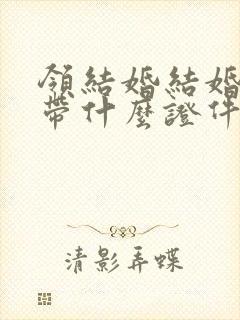 領結婚結婚
帶什麼證件
清影弄蝶